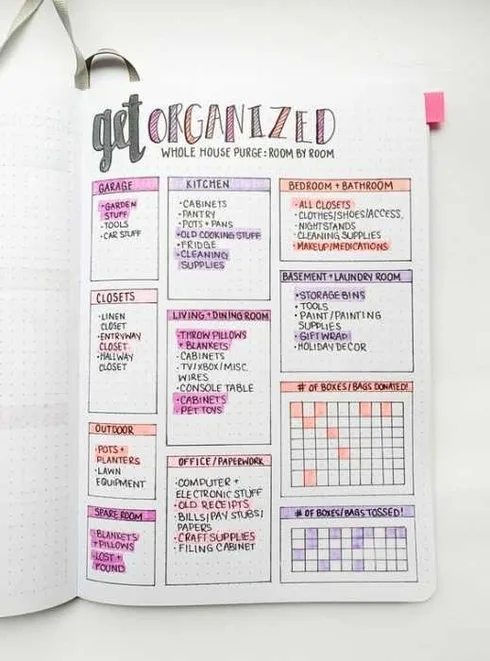 get ORGANIZED
WHOLE HOUSE PURGE: ROOM BY ROOM
GARAGE
• GARDEN
STUFF
• TOOLS
• CAR STUFF
CLOSETS
• LINEN
CLOSET
• ENTRYWAY
CLOSET
• HALLWAY
CLOSET
OUTDOOR
• POTS +
PLANTERS
• LAWN
EQUIPMENT
SPARE ROOM
• BLANKETS
+ PILLOWS
• LOST +
FOUND
KITCHEN
• CABINETS
• PANTRY
• POTS + PANS
• OLD COOKING STUFF
• FRIDGE
• CLEANING
SUPPLIES
LIVING + DINING ROOM
• THROW PILLOWS
+ BLANKETS
• CABINETS
• TV/XBOX/MISC.
WIRES
• CONSOLE TABLE
• CABINETS
• PET TOYS
OFFICE/PAPERWORK
• COMPUTER +
ELECTRONIC STUFF
• OLD RECEIPTS
• BILLS/PAY STUBS/
PAPERS
• CRAFT SUPPLIES
• FILING CABINET
BEDROOM + BATHROOM
• ALL CLOSETS
• CLOTHES/SHOES/ACCESS.
• NIGHTSTANDS
• CLEANING SUPPLIES
• MAKEUP/MEDICATIONS
BASEMENT + LAUNDRY ROOM
• STORAGE BINS
• TOOLS
• PAINT/PAINTING
SUPPLIES
• GIFT WRAP
• HOLIDAY DECOR
# OF BOXES/BAGS DONATED!
# OF BOXES/BAGS TOSSED!